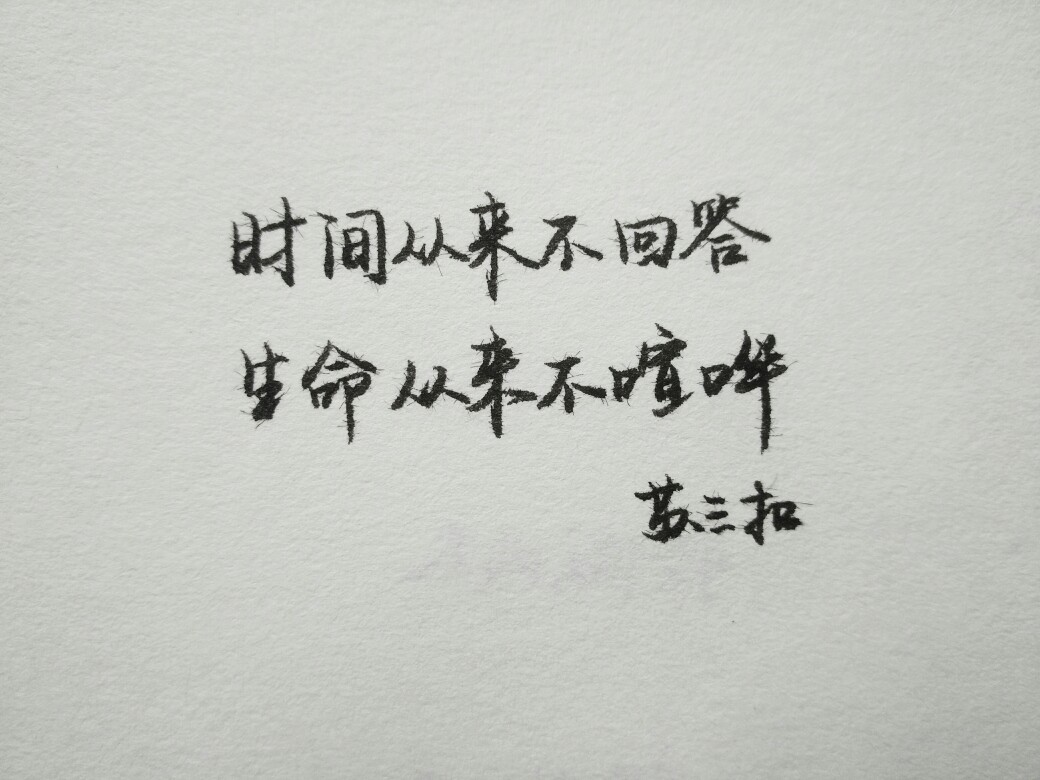 时间从来不回答
生命从来不喧哗
苏三扣